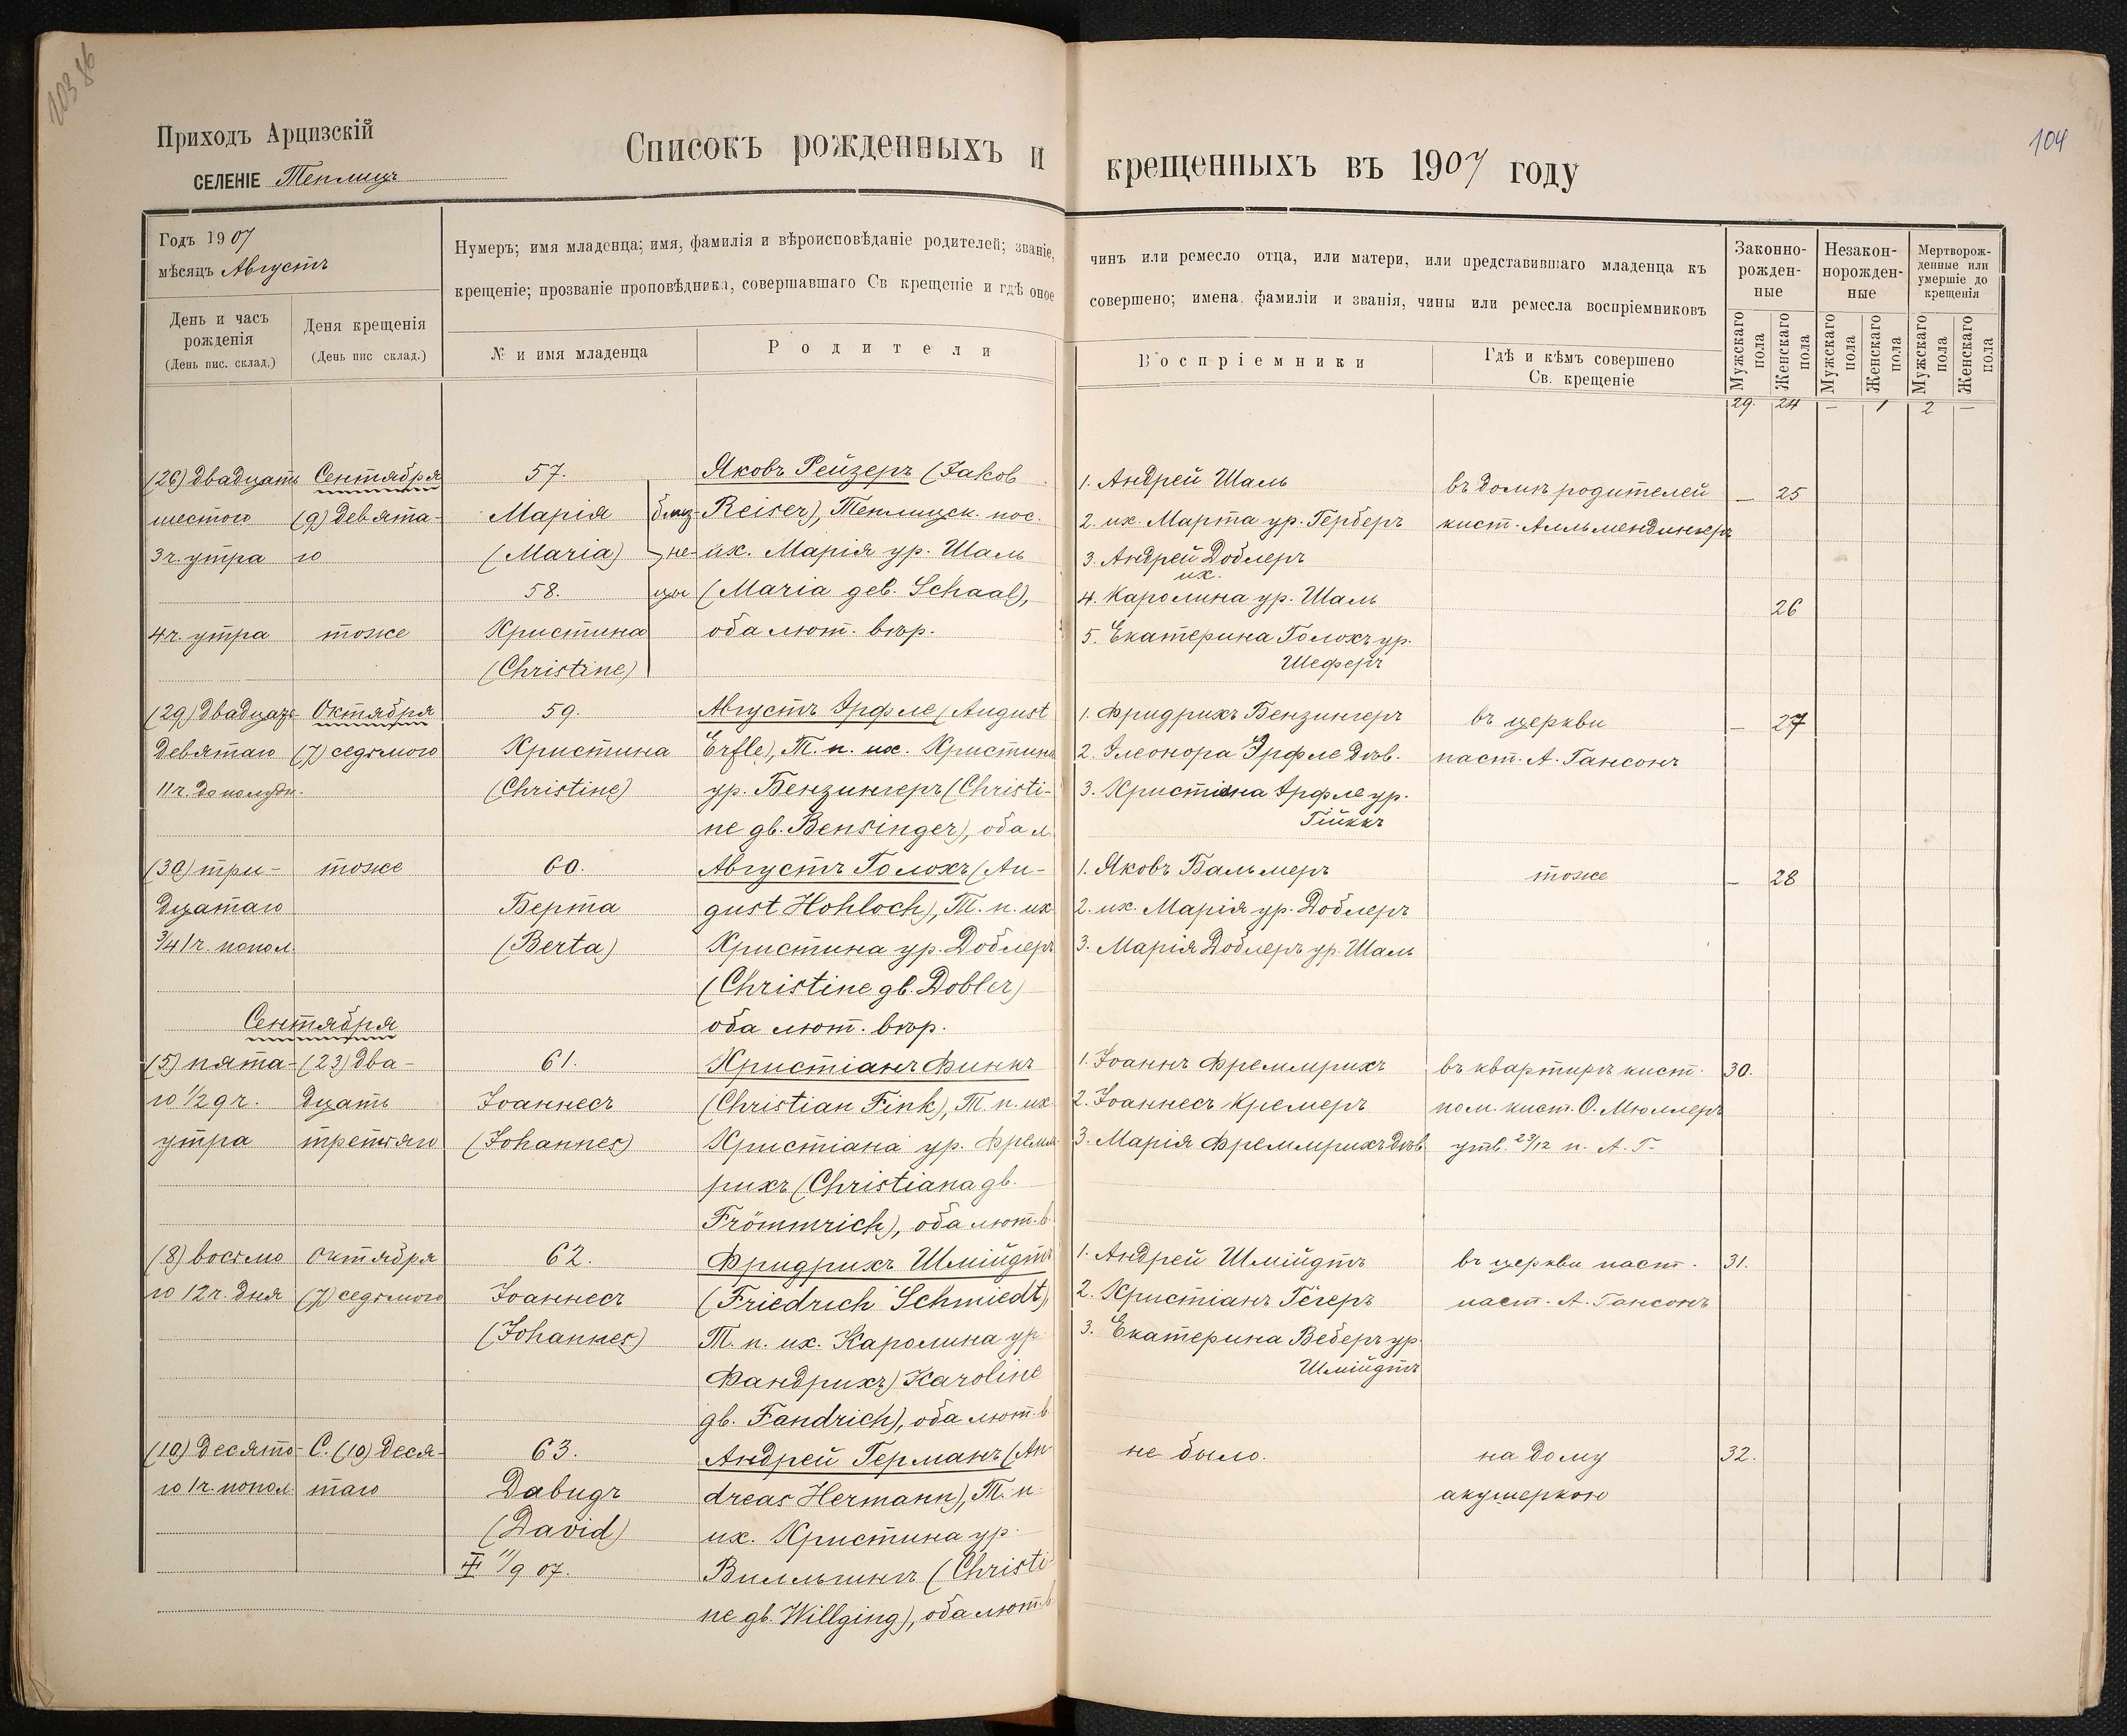 103 86
104
Приходъ Арцизскій
СЕЛЕНІЕ Теплицъ
Списокъ рожденныхъ и крещенныхъ въ 1907 году
Годъ 1907
мѣсяцъ Августъ
День и часъ
рожденія
(День пис. склад.)
Деня крещенія
(День пис склад.)
Нумеръ; имя младенца; имя, фамилія и вѣроисповѣданіе родителей; званіе,
крещеніе; прозваніе проповѣдника, совершавшаго Св крещеніе и гдѣ оное
№ и имя младенца
Родители
чинъ или ремесло отца, или матери, или представившаго младенца къ
совершено; имена, фамиліи и званія, чины или ремесла воспріемниковъ
Воспріемники
Гдѣ и кѣмъ совершено
Св. крещеніе
Законно-
рожден-
ные
Незакон-
норожден-
ные
Мертворож-
денные или
умершіе до
крещенія
Мужскаго пола
Женскаго пола
Мужскаго пола
Женскаго пола
Мужскаго пола
Женскаго пола
29. 24 — 1 2 —
(26) двадцать
шестого
3 ч. утра
4 ч. утра
Сентября
(9) девята-
го
тоже
57.
Марія
(Maria)
58.
Христина
(Christine)
близ-
не-
цы
Яковъ Рейзеръ (Jakob
Reiser), Теплицск. пос.
их. Марія ур. Шаль
(Maria geb. Schaal),
оба лют. вѣр.
1. Андрей Шаль
2. их. Марта ур. Герберъ
3. Андрей Доблеръ
их.
4. Каролина ур. Шаль
5. Екатерина Голохъ ур.
Шеферъ
въ домѣ родителей
кист. Алльмендингеръ
— 25
26
(29) двадцать
девятаго
11 ч. до полудн.
Октября
(7) седьмого
59.
Христина
(Christine)
Августъ Эрфле (August
Erfle), Т. п. их. Христина
ур. Бензингеръ (Christi-
ne gb. Bensinger), оба л.
1. Фридрихъ Бензингеръ
2. Элеонора Эрфле дѣв.
3. Христина Эрфле ур.
въ церкви
паст. А. Гансонъ
— 27
(30) три-
дцатаго
3/4 1 ч. попол.
тоже
60.
Берта
(Berta)
Августъ Голохъ (Au-
gust Hohloch), Т. п. их
Христина ур. Доблеръ
(Christine gb. Dobler)
оба лют. вѣр.
1. Яковъ Бальмеръ
2. их. Марія ур. Доблеръ
3. Марія Доблеръ ур. Шаль
тоже
— 28
Сентября
(5) пята-
го 1/2 9 ч.
утра
(23) два-
дцать
третьяго
61.
Іоаннесъ
(Johannes)
Христіанъ Финкъ
(Christian Fink), Т. п. их.
Христіана ур. Фремм-
рихъ (Christiana gb.
Frömmrich), оба лют. в.
1. Іоаннъ Фреммрихъ
2. Іоаннесъ Кремеръ
3. Марія Фреммрихъ дѣв.
въ квартирѣ кист.
пом. кист. О. Мюллеръ
утв. 23/12 п. А. Г.
30.
(8) восьмо
го 12 ч. дня
Октября
(7) седьмого
62.
Іоаннесъ
(Johannes)
Фридрихъ Шмійдтъ
(Friedrich Schmiedt),
Т. п. их. Каролина ур.
Фандрихъ) Karoline
gb. Fandrich), оба лют. в
1. Андрей Шмійдтъ
2. Христіанъ Гегеръ
3. Екатерина Веберъ ур.
Шмійдтъ
въ церкви паст.
паст. А. Гансонъ
31.
(10) десято-
го 1 ч. попол
С. (10) деся-
таго
63.
Давидъ
(David)
11/9 07.
Андрей Германъ (An-
dreas Hermann), Т. п.
их. Христина ур.
Вилльгингъ (Christi-
ne gb. Willging), оба лют. в.
не было.
на дому
акушеркою
32.